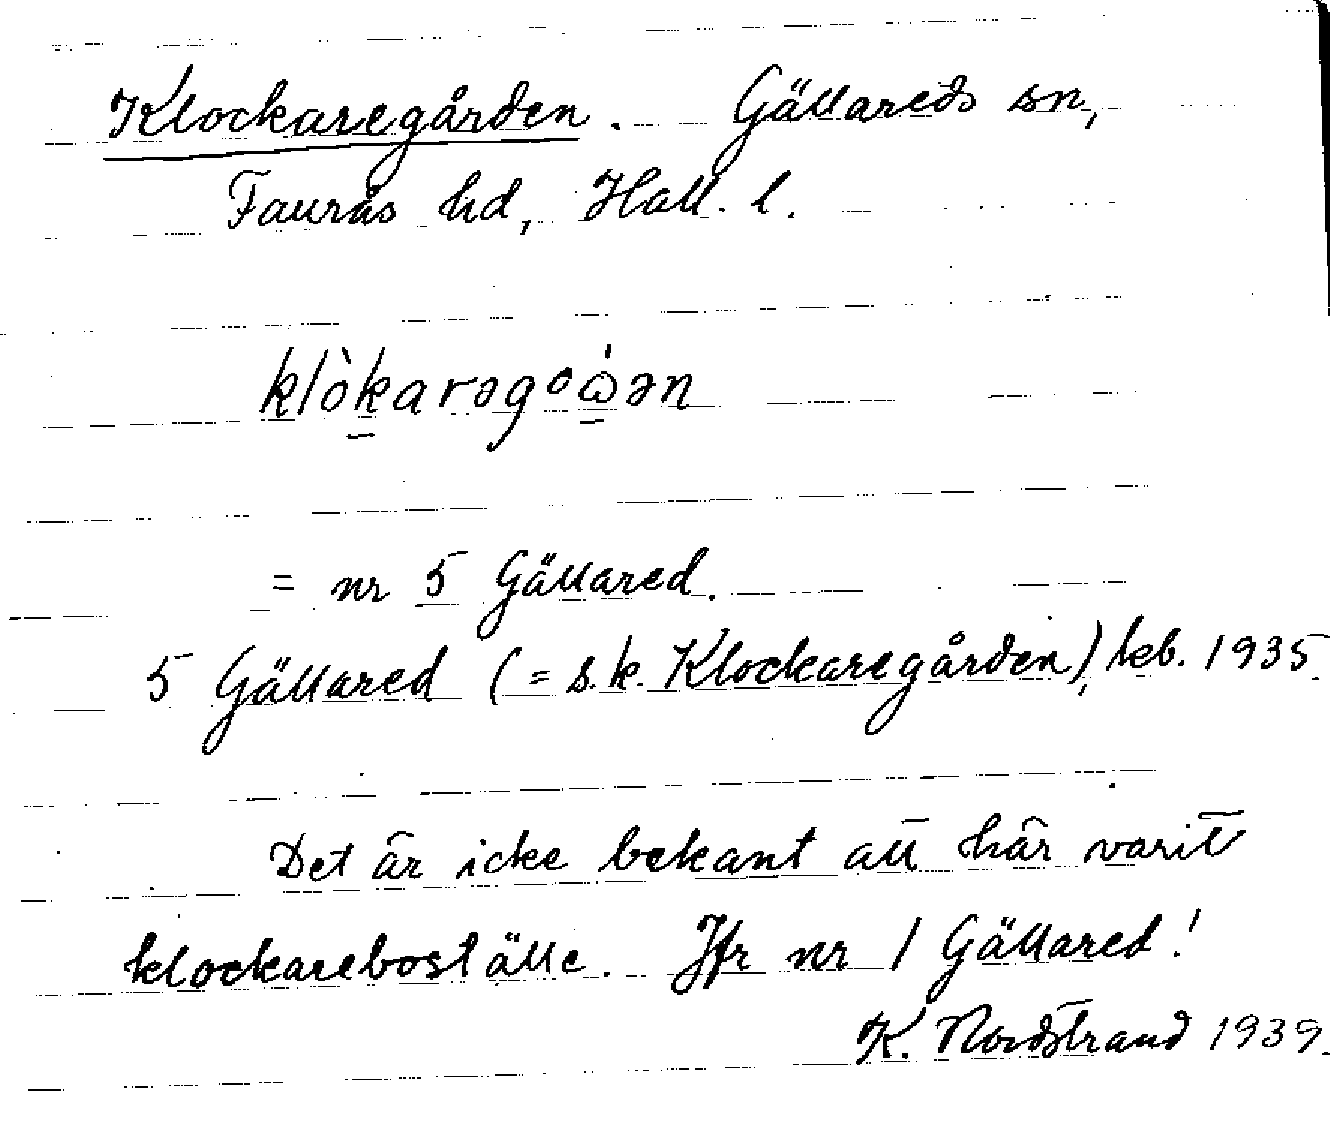 Klockaregården. Gällareds sn,
Faurås hd, Hall. l.
klòkarəgoὼən
= nr 5 Gällared.
5 Gällared (= s.k. Klockaregården), keb. 1935
Det är icke bekant att här varit
klockareboställe. Jfr nr 1 Gällared!
K. Nordstrand 1939.